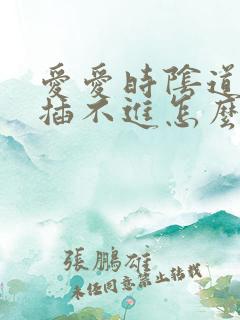 愛愛時陰道
插不進怎麼
張鵬雄
未经同意禁止转载